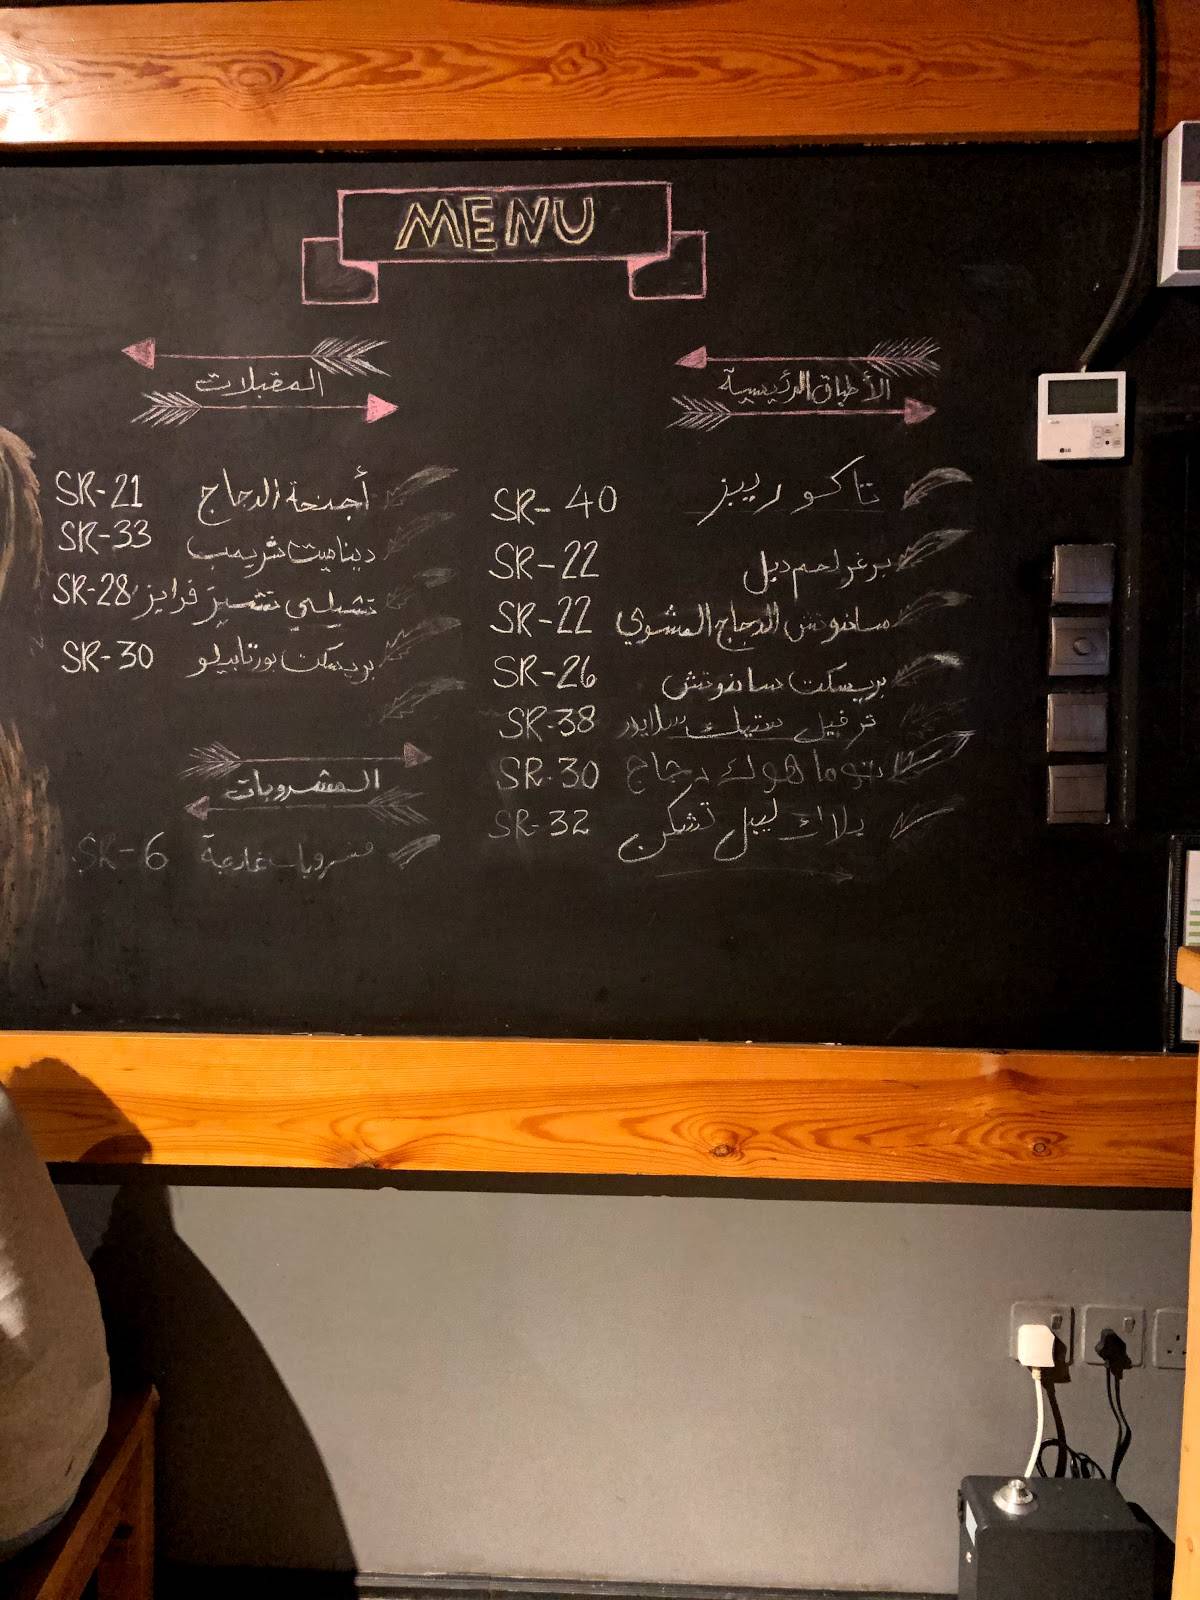 MENU
الأطباق الرئيسية
تاكو ريبز SR-40
برغر لحم دبل SR-22
ساندوتش الدجاج المشوي SR-22
بريسكت ساندوتش SR-26
ترفيل ستيك سلايدر SR-38
توماهوك دجاج SR-30
بلاك ليبل تشكن SR-32
المقبلات
أجنحة الدجاج SR-21
ديناميت شريمب SR-33
تشيلي تشيز فرايز SR-28
بريسكت بورتابيلو SR-30
المشروبات
مشروبات غازية SR-6
LG